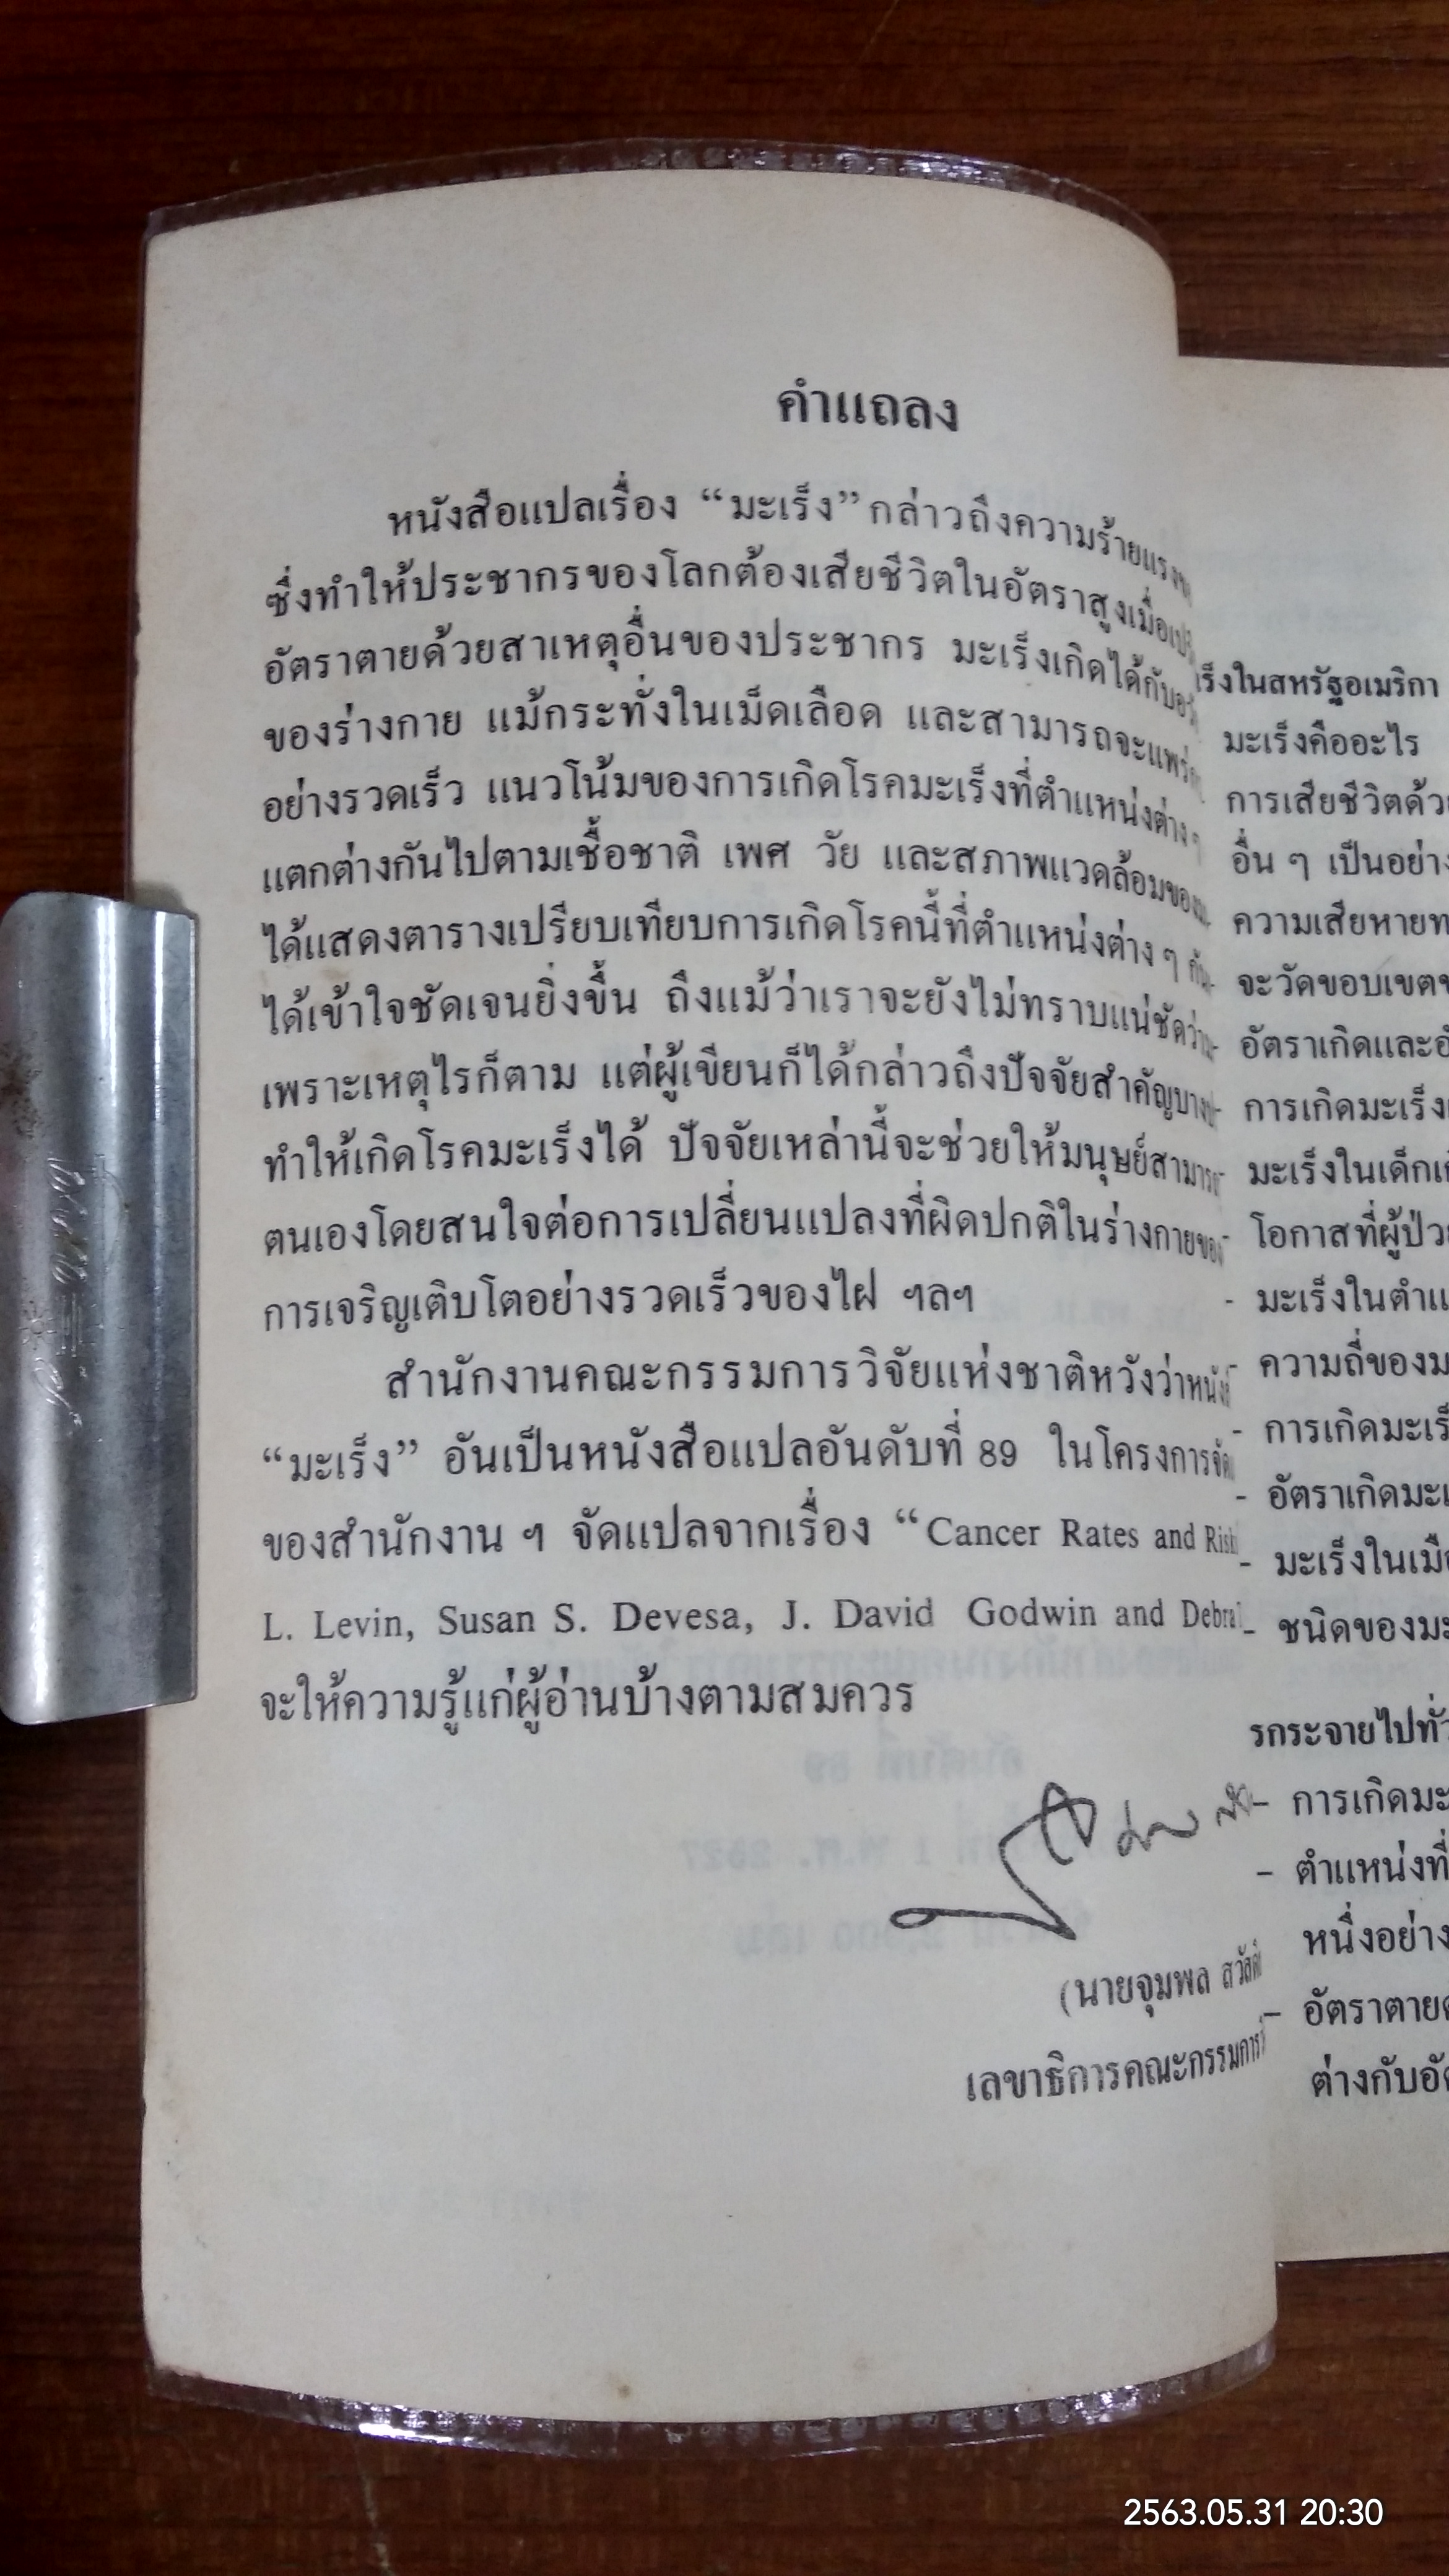 คำแถลง
หนังสือแปลเรื่อง “มะเร็ง” กล่าวถึงความร้ายแรง
ซึ่งทำให้ประชากรของโลกต้องเสียชีวิตในอัตราสูงเมื่อ
อัตราตายด้วยสาเหตุอื่นของประชากร มะเร็งเกิดได้กับ
ของร่างกาย แม้กระทั่งในเม็ดเลือด และสามารถจะแพร่
อย่างรวดเร็ว แนวโน้มของการเกิดโรคมะเร็งที่ตำแหน่งต่าง ๆ
แตกต่างกันไปตามเชื้อชาติ เพศ วัย และสภาพแวดล้อมของ
ได้แสดงตารางเปรียบเทียบการเกิดโรคนี้ที่ตำแหน่งต่าง ๆ
ได้เข้าใจชัดเจนยิ่งขึ้น ถึงแม้ว่าเราจะยังไม่ทราบแน่ชัดว่า
เพราะเหตุไรก็ตาม แต่ผู้เขียนก็ได้กล่าวถึงปัจจัยสำคัญบาง
ทำให้เกิดโรคมะเร็งได้ ปัจจัยเหล่านี้จะช่วยให้มนุษย์สามารถ
ตนเองโดยสนใจต่อการเปลี่ยนแปลงที่ผิดปกติในร่างกายของ
การเจริญเติบโตอย่างรวดเร็วของไฝ ฯลฯ
สำนักงานคณะกรรมการวิจัยแห่งชาติหวังว่าหนัง
“มะเร็ง” อันเป็นหนังสือแปลอันดับที่ 89 ในโครงการ
ของสำนักงาน ฯ จัดแปลจากเรื่อง “Cancer Rates and Risk
L. Levin, Susan S. Devesa, J. David Godwin and Debra
จะให้ความรู้แก่ผู้อ่านบ้างตามสมควร
(นายจุมพล สวัสดิ
เลขาธิการคณะกรรมการ
เร็งในสหรัฐอเมริกา
มะเร็งคืออะไร
การเสียชีวิตด้วย
อื่น ๆ เป็นอย่าง
- ความเสียหายท
- จะวัดขอบเขต
- อัตราเกิดและอั
- การเกิดมะเร็ง
- มะเร็งในเด็ก
- โอกาสที่ผู้ป่วย
- มะเร็งในตำแ
- ความถี่ของม
- การเกิดมะเร็
- อัตราเกิดมะเ
- มะเร็งในเมื
- ชนิดของมะ
รกระจายไปทั่ว
- การเกิดมะ
- ตำแหน่งที่
หนึ่งอย่าง
- อัตราตาย
ต่างกับอั
2563.05.31 20:30